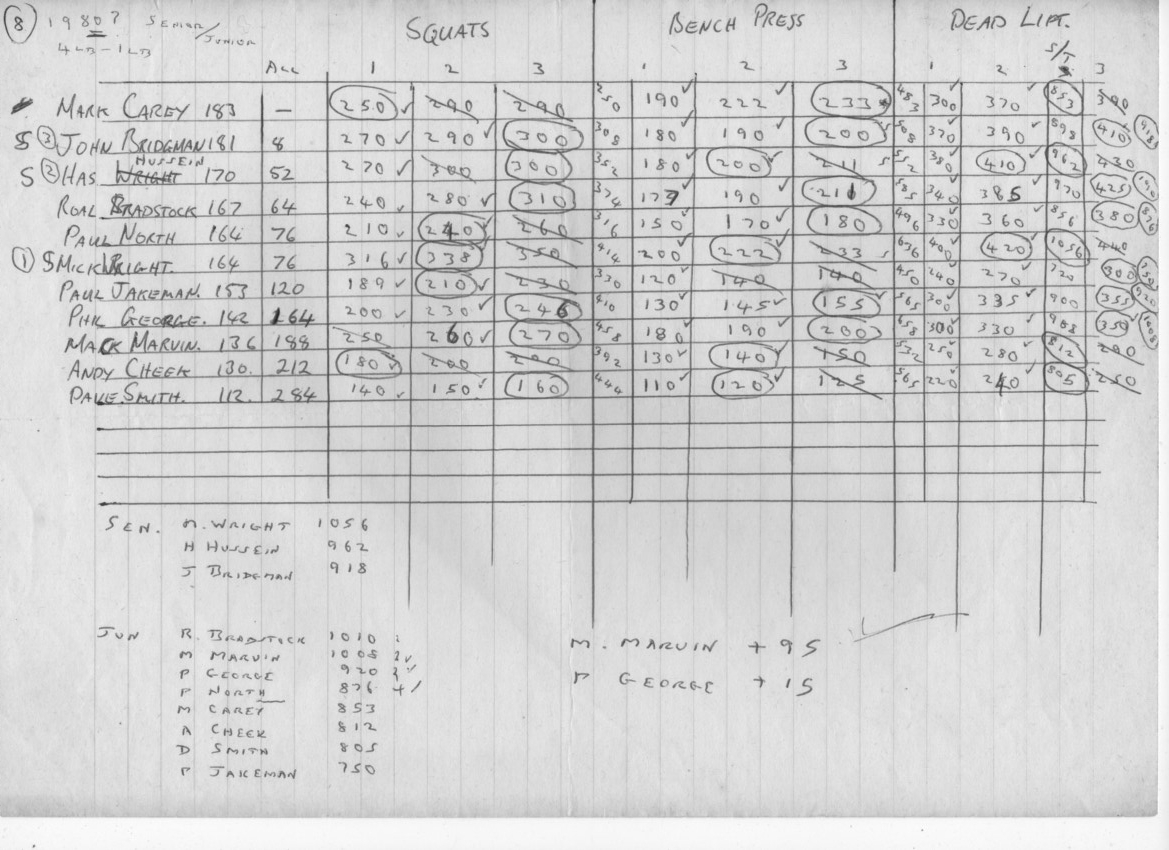 8 1980? SENIOR/JUNIOR SQUATS BENCH PRESS DEAD LIFT.
4LB-1LB S/T
ALL 1 2 3 1 2 3 1 2 3
MARK CAREY 183 — 250 290 290 250 190 222 233 483 300 370 853 390
S 3 JOHN BRIDGMAN 181 8 270 290 300 308 180 190 200 508 370 390 898 410 918
HUSSEIN
S 2 HAS WRIGHT 170 52 270 300 300 352 180 200 211 552 380 410 962 430
ROAL BRADSTOCK 167 64 240 280 310 374 177 190 211 585 340 385 970 425 1010
PAUL NORTH 164 76 210 240 260 316 150 170 180 496 330 360 856 380 876
1 S MICK WRIGHT. 164 76 316 338 350 414 200 222 233 636 400 420 1056 440
PAUL JAKEMAN. 153 120 189 210 230 330 120 140 140 450 240 270 720 300 750
PHIL GEORGE. 142 164 200 230 246 410 130 145 155 565 300 335 900 355 920
MARK MARVIN. 136 188 250 260 270 458 180 190 200 658 300 330 988 350 1008
ANDY CHEEK 130. 212 180 200 200 392 130 140 150 532 250 280 812 290
DAVE SMITH. 112. 284 140 150 160 444 110 120 125 565 220 240 805 250
SEN. M. WRIGHT 1056
H HUSSEIN 962
J BRIDGMAN 918
JUN R. BRADSTOCK 1010
M MARVIN 1005 2
P GEORGE 920 3
P NORTH 876 4
M CAREY 853
A CHEEK 812
D SMITH 805
P JAKEMAN 750
M. MARVIN +95
P GEORGE +15